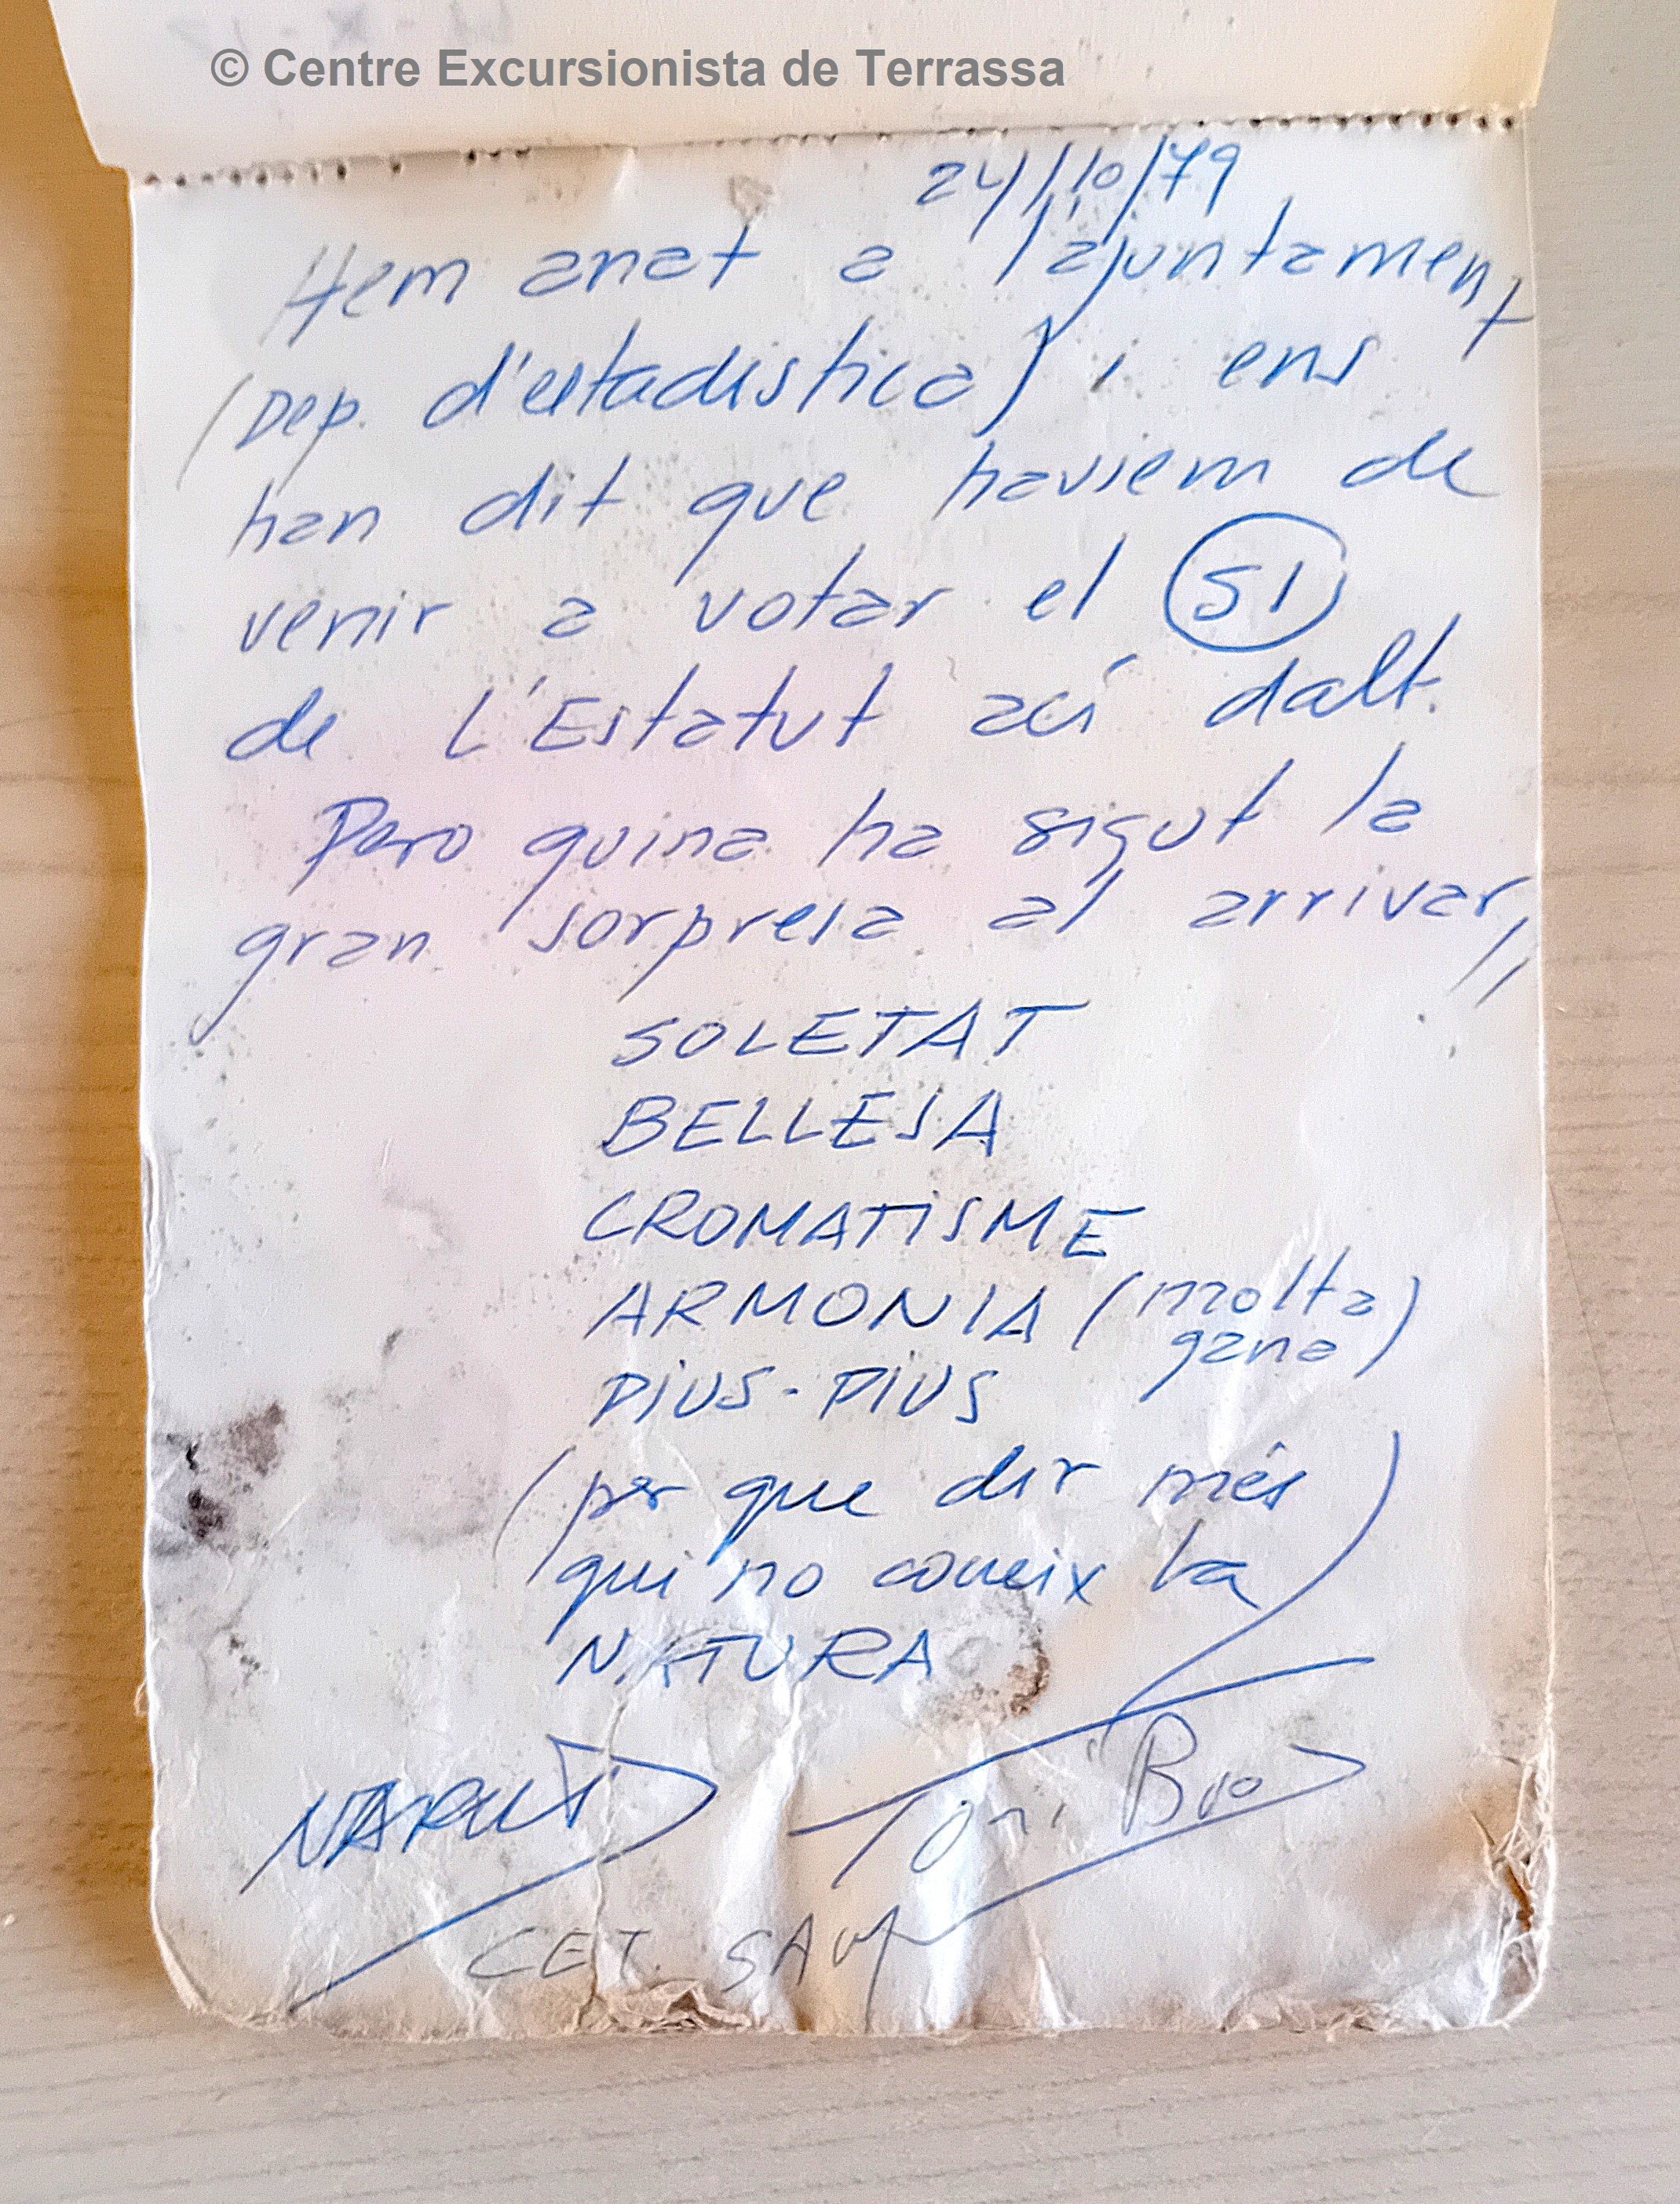 © Centre Excursionista de Terrassa
24/10/79
Hem anat a l'ajuntament
(Dep. d'estadistica) i ens
han dit que haviem de
venir a votar el SI
de L'Estatut ací dalt.
Pero quina ha sigut la
gran sorpresa al arrivar,,
SOLETAT
BELLESA
CROMATISME
ARMONIA (molta
gana)
PIUS-PIUS
(per que dir més
qui no coneix la
NATURA)
Toni
CET.